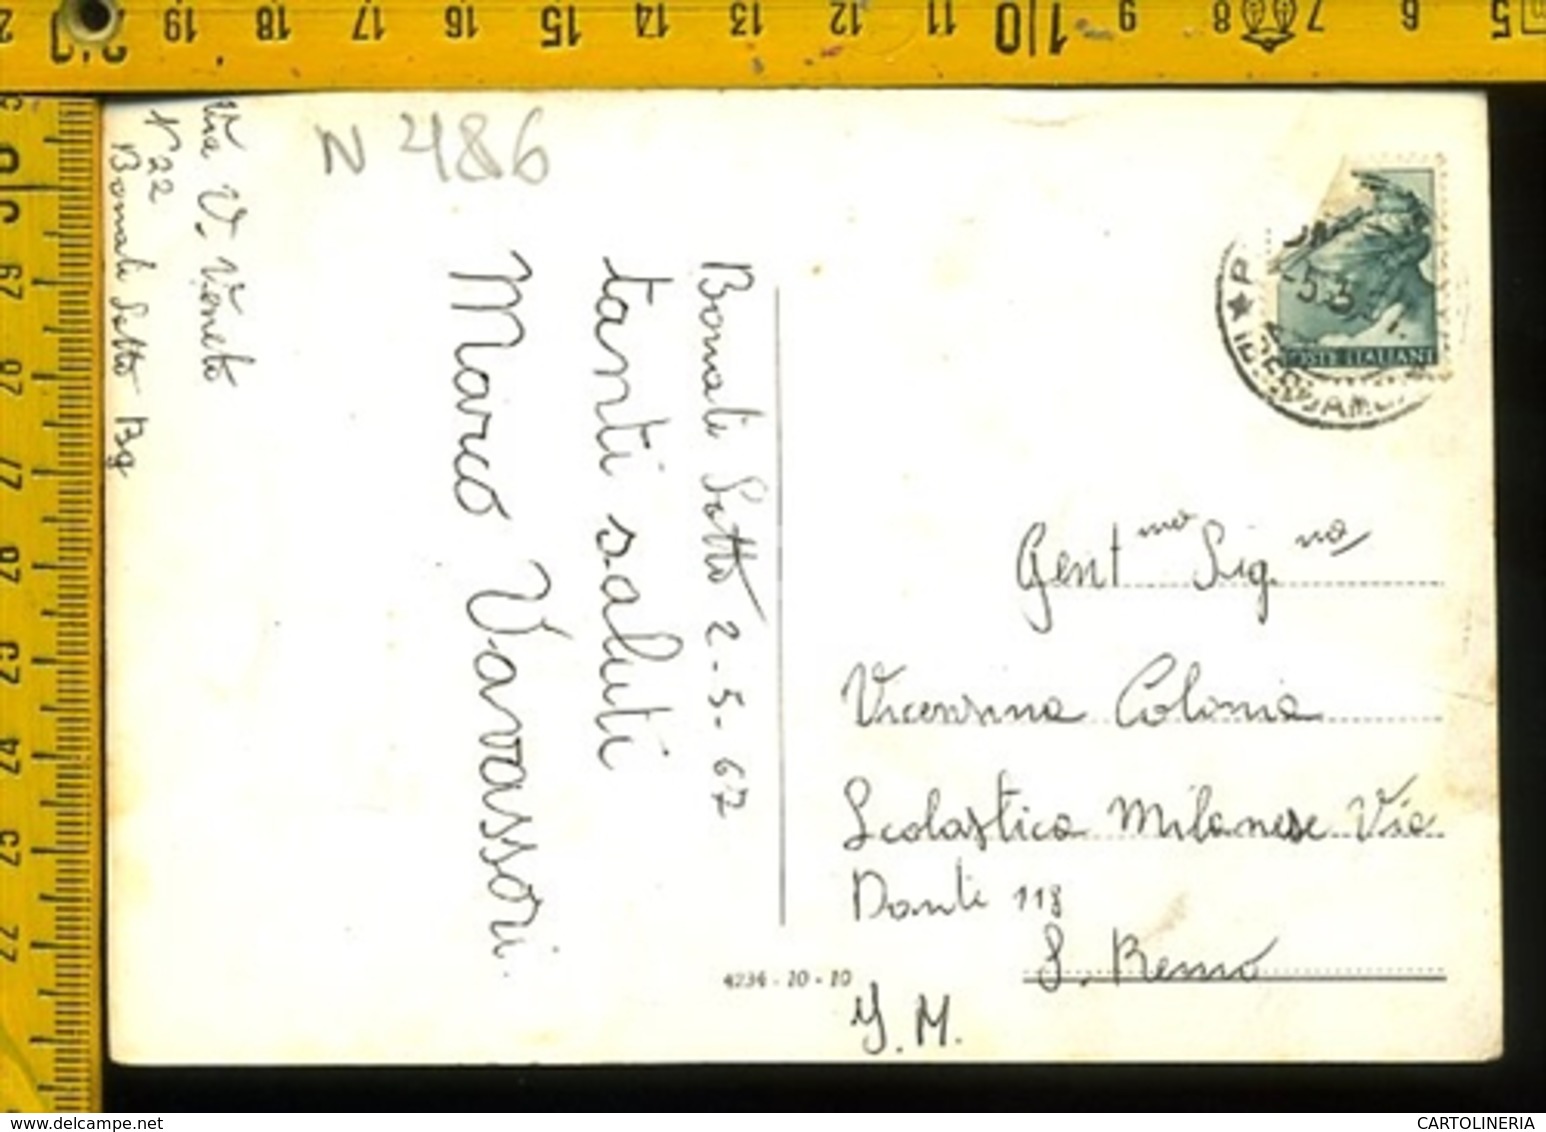 N 486
Via V. Veneto
N 22
Bonate Sotto Bg
Bonate Sotto 2-5-67
tanti saluti
Marco Vavassori.
POSTE ITALIANE
Gent ma Sig. na
Vicensina Colonia
Scolastica Milanese Via
Dante 118
S. Remo
4234 - 20 - 20
I. M.
www.delcampe.net
CARTOLINERIA